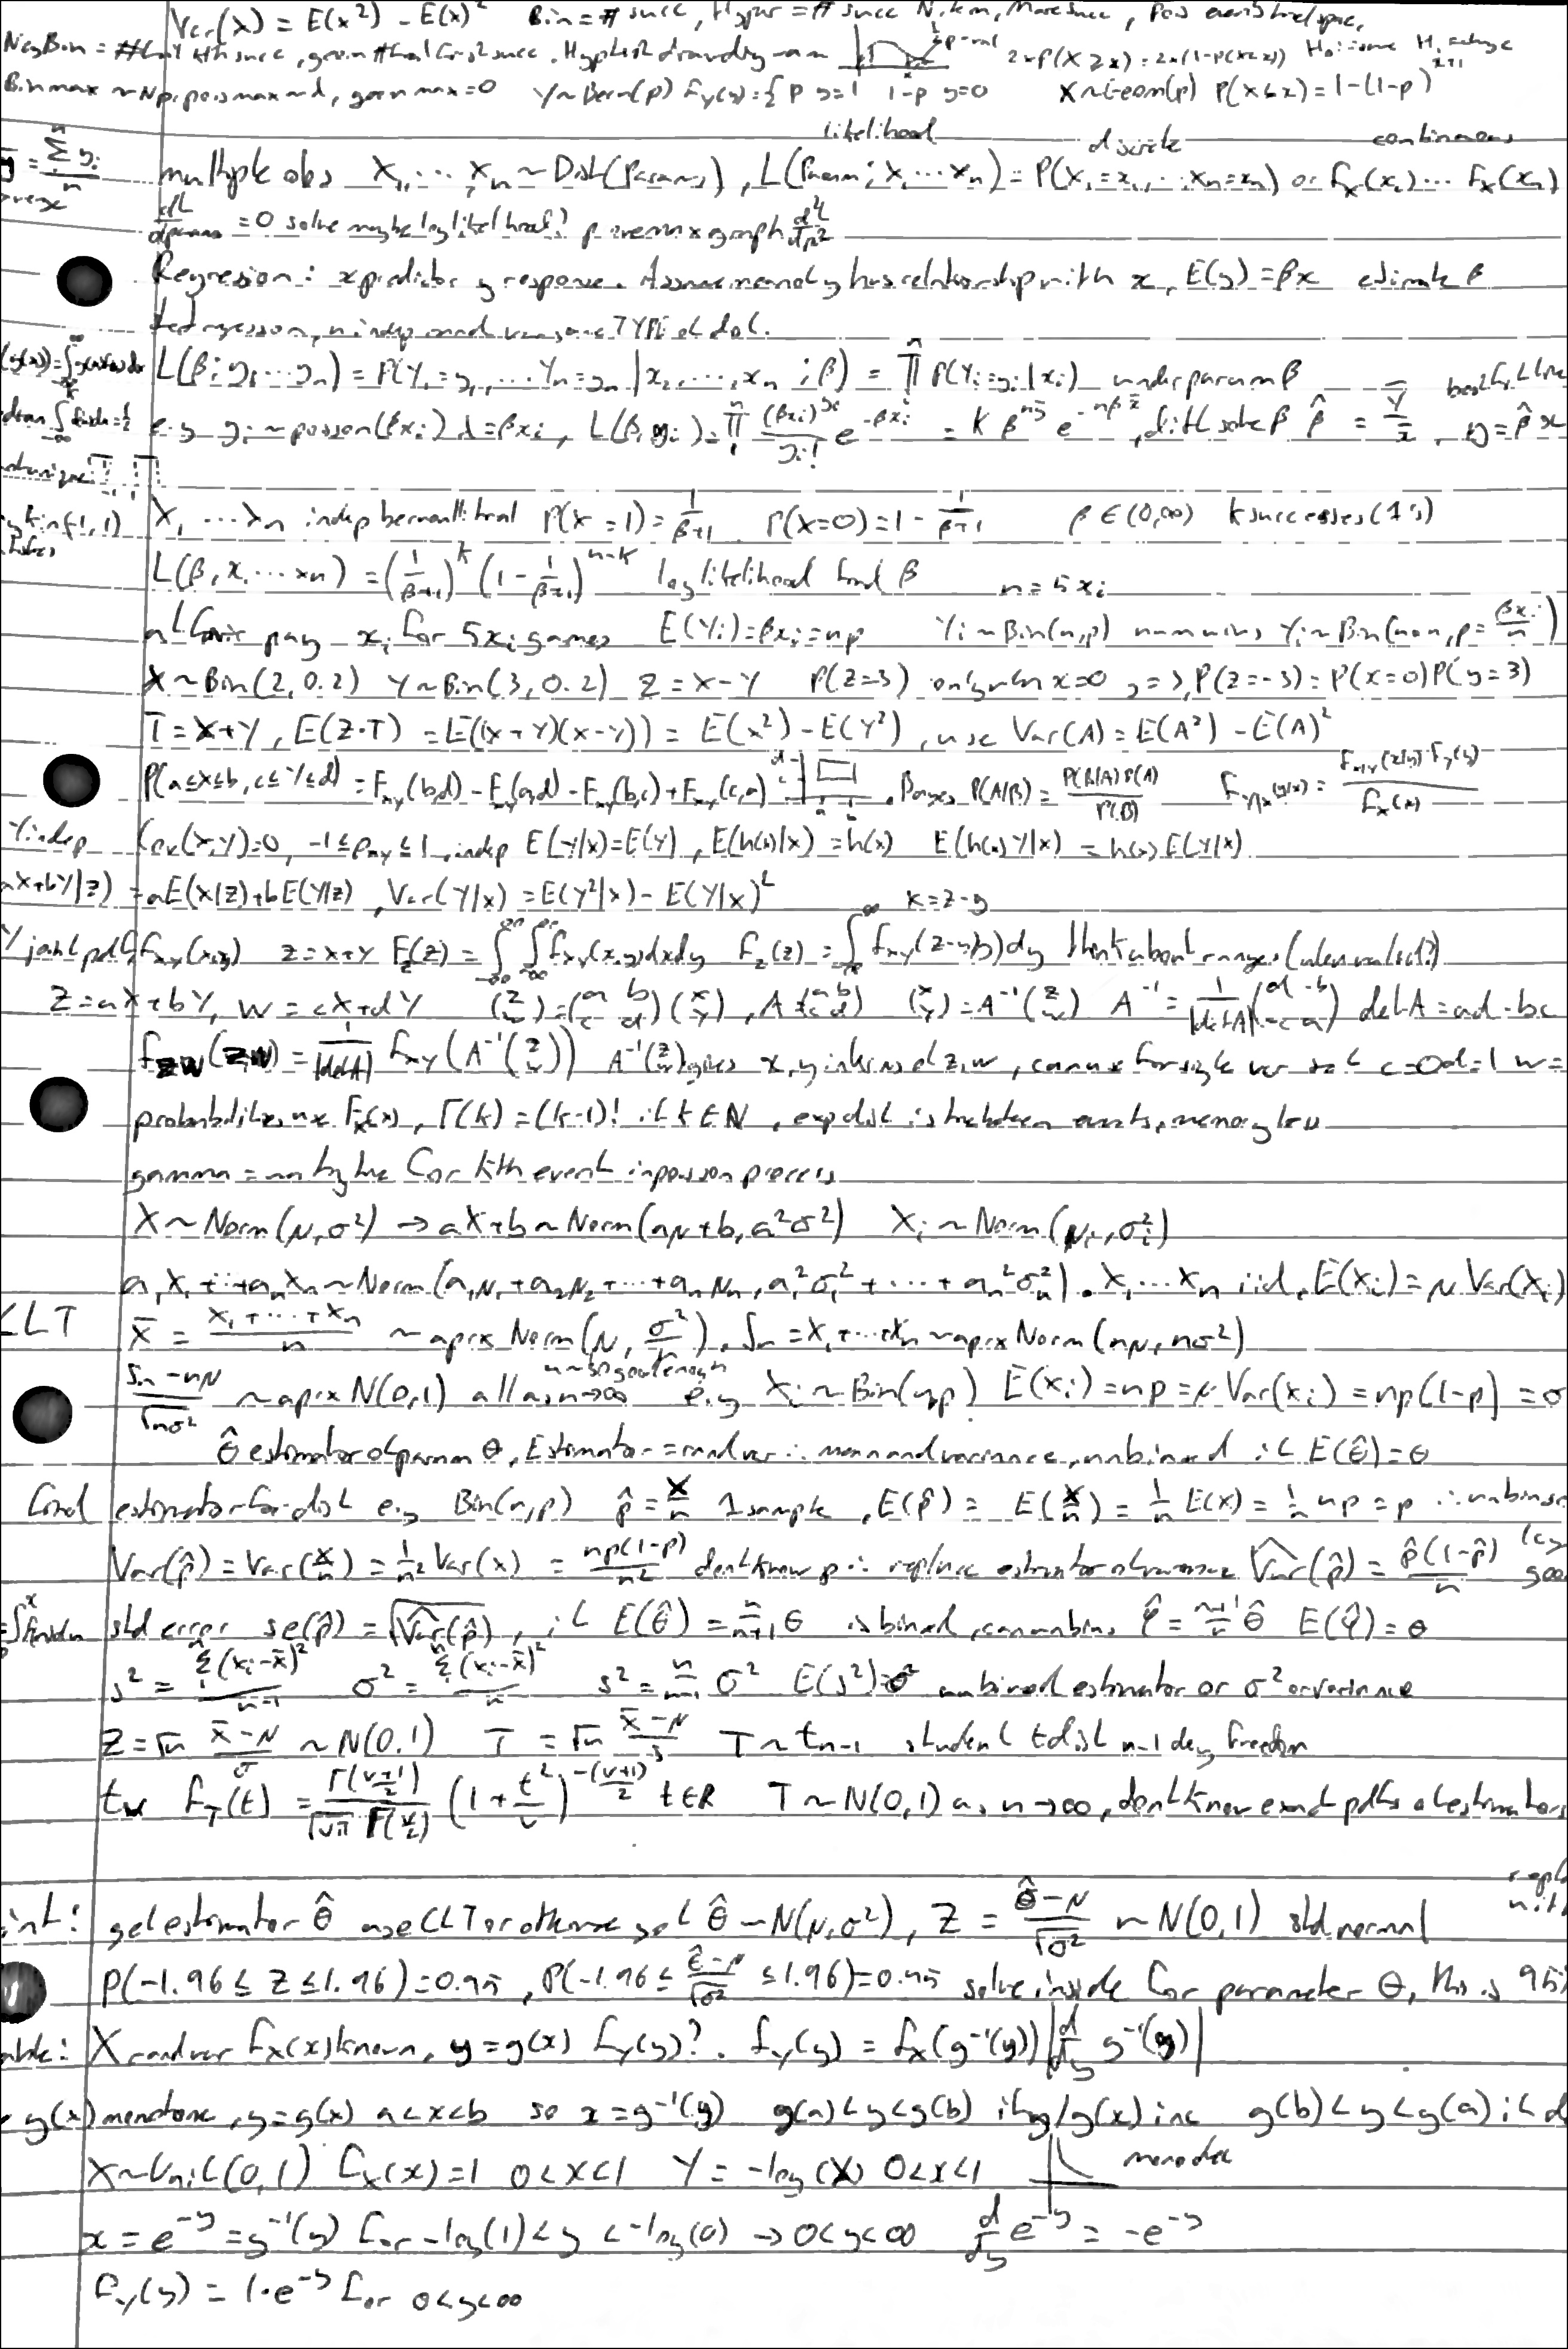 Var(X) = E(x²) - E(x)² Bin = # succ, Hyper = # succ N item, M are succ, Pois events time/space,
NegBin = # trial kth succ, geom # trial first succ. Hyp test p-val 2×P(X≥x) = 2×(1-P(X<x)) H₀: same H₁
Bin max ~ Np, pois max ~ λ, geom max = 0 Y~Bern(p) f_Y(y) = { p y=1 1-p y=0 X~Geom(p) P(X≤x) = 1-(1-p)^{x+1}
likelihood discrete continuous
ȳ = Σ yᵢ / n multiple obs X₁, ... , Xₙ ~ Dist(Params), L(Param; X₁ ... Xₙ) = P(X₁=x₁, ... Xₙ=xₙ) or f_X(x₁) ... f_X(xₙ)
dL/dparams = 0 solve maybe log likelihood? prove max graph d²L/dp²
Regression: x predictor y response. Assume mean of y has relationship with x, E(y) = βx estimate β
regression, n indep TYPE of dist.
L(β; y₁ ... yₙ) = P(Y₁=y₁, ... Yₙ=yₙ | x₁, ..., xₙ; β) = Π P(Yᵢ=yᵢ|xᵢ) under param β best fit line
e.g yᵢ ~ poisson(βxᵢ) λ = βxᵢ, L(β; yᵢ) = Π (βxᵢ)^{yᵢ} / yᵢ! e^{-βxᵢ} = K β^{nȳ} e^{-nβx̄}, diff solve β β̂ = Ȳ/x̄, y = β̂x
X₁ ... Xₙ indep bernoulli trial P(x=1) = 1/(β+1) P(x=0) = 1 - 1/(β+1) β ∈ (0,∞) k successes (1's)
L(β, x₁ ... xₙ) = (1/(β+1))^k (1 - 1/(β+1))^{n-k} log likelihood find β n = 5xᵢ
pay xᵢ for 5xᵢ games E(Yᵢ) = βxᵢ = np Yᵢ ~ Bin(n,p) num wins Yᵢ ~ Bin(n, p = βxᵢ/n)
X~Bin(2, 0.2) Y~Bin(3, 0.2) Z = X-Y P(Z=-3) only when x=0 y=3, P(z=-3) = P(x=0)P(y=3)
T = X+Y, E(Z·T) = E((x+Y)(x-Y)) = E(x²) - E(Y²), use Var(A) = E(A²) - E(A)²
P(a≤x≤b, c≤Y≤d) = F_XY(b,d) - F_XY(a,d) - F_XY(b,c) + F_XY(c,a). Bayes P(A|B) = P(B|A)P(A) / P(B) f_{Y|X}(y|x) = f_{X|Y}(x|y) f_Y(y) / f_X(x)
Y indep Cov(X,Y) = 0, -1 ≤ ρ_XY ≤ 1, indep E(Y|x) = E(Y), E(h(x)|x) = h(x) E(h(x)Y|x) = h(x)E(Y|x)
aX+bY|z) = aE(X|z) + bE(Y|z), Var(Y|x) = E(Y²|x) - E(Y|x)² x = z-y
Y joint pdf f_XY(x,y) z = x+Y F_Z(z) = ∫∫ f_XY(x,y) dxdy f_Z(z) = ∫ f_XY(z-y,y) dy think about ranges (when valid?)
Z = aX+bY, W = cX+dY (z w) = (a b c d)(x y), A = (a b c d) (x y) = A⁻¹(z w) A⁻¹ = 1/|detA| (d -b -c a) detA = ad-bc
f_ZW(ZW) = 1/|detA| f_XY(A⁻¹(z w)) A⁻¹(z w) gives x,y in terms of z,w, can use for single var set c=0 d=1 w=
probabilities use F_X(x), Γ(k) = (k-1)! if k∈N, exp dist is time between events, memoryless
gamma = waiting time for kth event in poisson process
X ~ Norm(μ,σ²) → aX+b ~ Norm(aμ+b, a²σ²) Xᵢ ~ Norm(μᵢ,σᵢ²)
a₁X₁ + ... + aₙXₙ ~ Norm(a₁μ₁ + a₂μ₂ + ... + aₙμₙ, a₁²σ₁² + ... + aₙ²σₙ²). X₁ ... Xₙ iid, E(Xᵢ) = μ Var(Xᵢ)
CLT X̄ = (X₁ + ... + Xₙ)/n ~ aprx Norm(μ, σ²/n), Sₙ = X₁ + ... + Xₙ ~ aprx Norm(nμ, nσ²)
n~30 good enough
(Sₙ - nμ)/√nσ² ~ aprx N(0,1) all as n→∞ e.g Xᵢ ~ Bin(n,p) E(xᵢ) = np = μ Var(xᵢ) = np(1-p) = σ
θ̂ estimator of param θ, Estimator = rand var ∴ mean and variance, unbiased if E(θ̂) = θ
find estimator for dist e.g Bin(n,p) p̂ = X/n 1 sample, E(p̂) = E(X/n) = 1/n E(x) = 1/n np = p ∴ unbiase
Var(p̂) = Var(X/n) = 1/n² Var(x) = np(1-p)/n² dont know p ∴ replace estimator of variance Var̂(p̂) = p̂(1-p̂)/n
std error se(p̂) = √Var̂(p̂), if E(θ̂) = n/(n+1) θ is biased, can unbias φ̂ = (n+1)/n θ̂ E(φ̂) = θ
s² = Σ(xᵢ-x̄)²/(n-1) σ² = Σ(xᵢ-x̄)²/n s² = n/(n-1) σ² E(s²) = σ² unbiased estimator or σ² or variance
Z = √n (x̄-μ)/σ ~ N(0,1) T = √n (x̄-μ)/s T ~ t_{n-1} student t dist n-1 deg freedom
t_v f_T(t) = Γ((v+1)/2) / (√vπ Γ(v/2)) (1 + t²/v)^{-(v+1)/2} t∈R T ~ N(0,1) as n→∞, dont know exact pdfs of estimators
int: get estimator θ̂ use CLT or otherwise get θ̂ ~ N(μ,σ²), Z = (θ̂-μ)/√σ² ~ N(0,1) std normal
P(-1.96 ≤ Z ≤ 1.96) = 0.95, P(-1.96 ≤ (θ̂-μ)/√σ² ≤ 1.96) = 0.95 solve inside for parameter θ, this is 95%
X rand var f_X(x) known, y = g(x) f_Y(y)?. f_Y(y) = f_X(g⁻¹(y)) |d/dy g⁻¹(y)|
g(x) monotone, y = g(x) a<x<b so x = g⁻¹(y) g(a)<y<g(b) if y/g(x) inc g(b)<y<g(a) if d
X~Unif(0,1) f_X(x) = 1 0<x<1 Y = -log(X) 0<x<1 mono dec
x = e^{-y} = g⁻¹(y) for -log(1) < y < -log(0) → 0<y<∞ d/dy e^{-y} = -e^{-y}
f_Y(y) = 1·e^{-y} for 0<y<∞